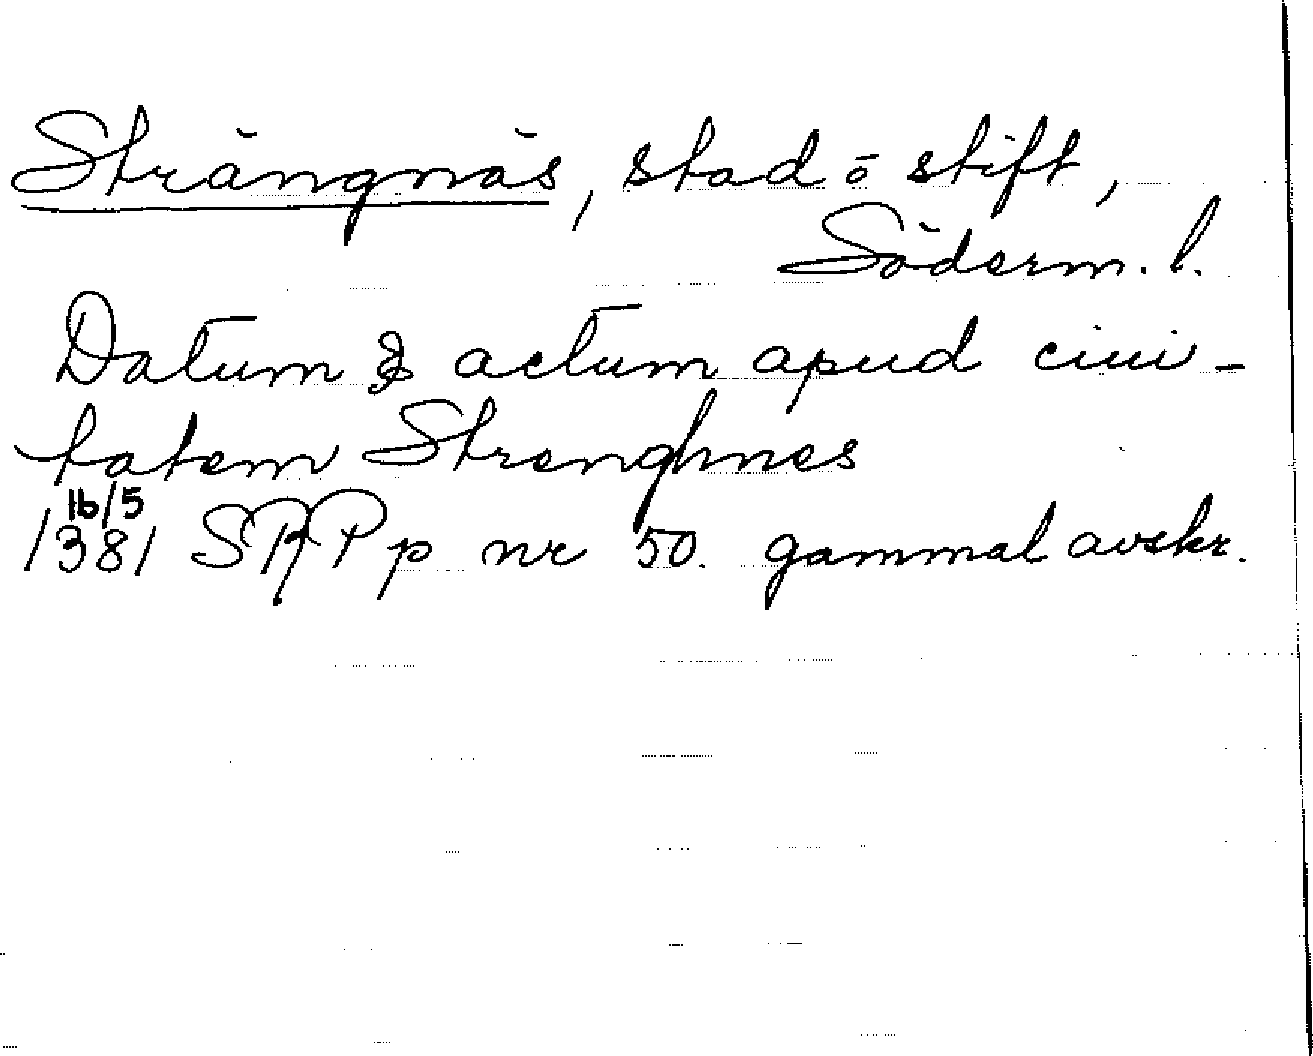 Strängnäs, stad o stift,
Söderm. l.
Datum & actum apud ciui-
tatem Strenghnes
16/5
1381 SRPp nr 50. gammal avskr.